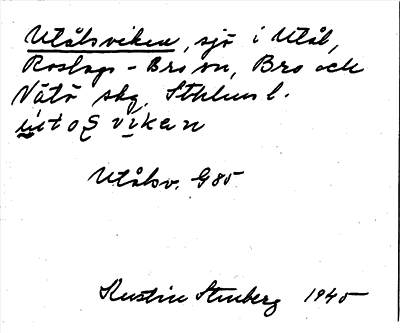 Utålsviken, sjö i Utål,
Roslags-Bro sn, Bro och
Vätö skg, Sthlms l.
ùtoʂ vikan
Utålsv. G 85
Kerstin Stenberg 1945